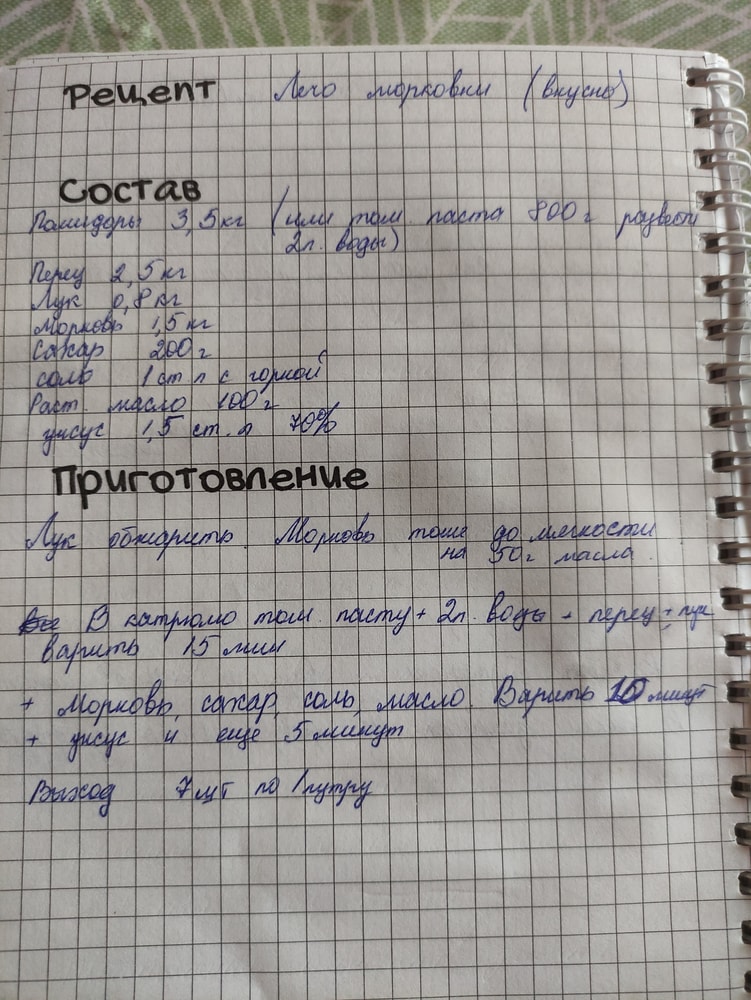 Рецепт Лечо морковки (вкусно)
Состав
Помидоры 3,5кг (или том. паста 800г развести
2л. воды)
Перец 2,5кг
Лук 0,8кг
Морковь 1,5кг
Сахар 200г
соль 1 ст л с горкой
Раст. масло 100г
уксус 1,5 ст. л 70%
Приготовление
Лук обжарить. Морковь тоже до мягкости
на 50г масла.
В катрюлю том. пасту + 2л. воды + перец + лук
варить 15 мин
+ Морковь, сахар, соль, масло. Варить 10 минут
+ уксус и еще 5 минут
Выход 7 шт по 1 литру